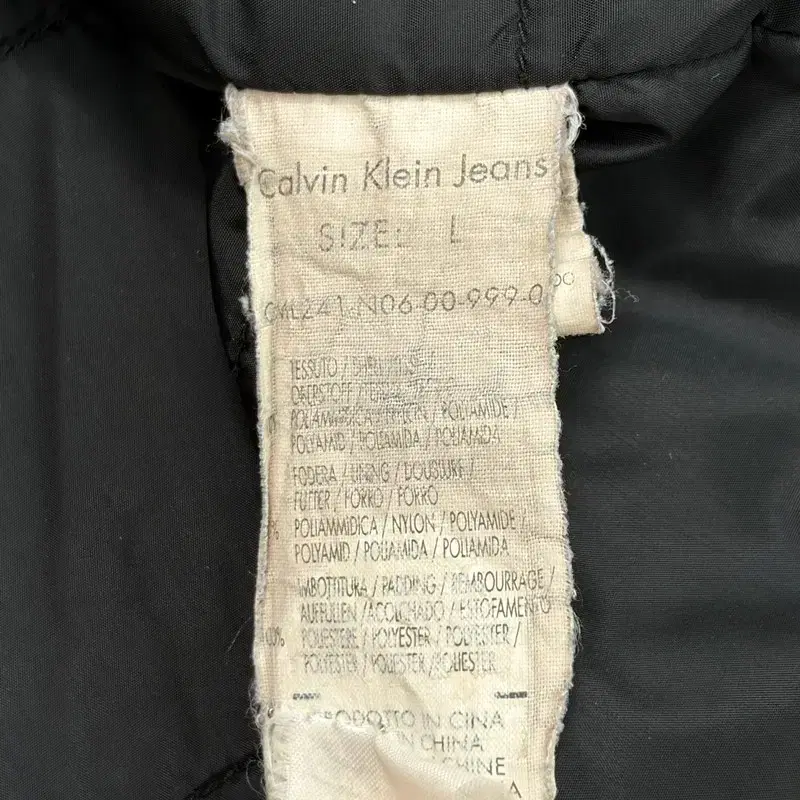 Calvin Klein Jeans
SIZE: L
CML241 N06-00-999-0
00
TESSUTO / SHELL /
OBERSTOFF /
POLIAMMIDICA / NYLON / POLYAMIDE /
POLYAMID / POLIAMIDA / POLIAMIDA
FODERA / LINING / DOUBLURE /
FUTTER / FORRO / FORRO
% POLIAMMIDICA / NYLON / POLYAMIDE /
POLYAMID / POLIAMIDA / POLIAMIDA
IMBOTTITURA / PADDING / REMBOURRAGE /
AUFFULLEN / ACOLCHADO / ESTOFAMENTO
100% POLIESTERE / POLYESTER / POLYESTER /
POLYESTER / POLIESTER / POLIESTER
PRODOTTO IN CINA
IN CHINA
CHINE
A